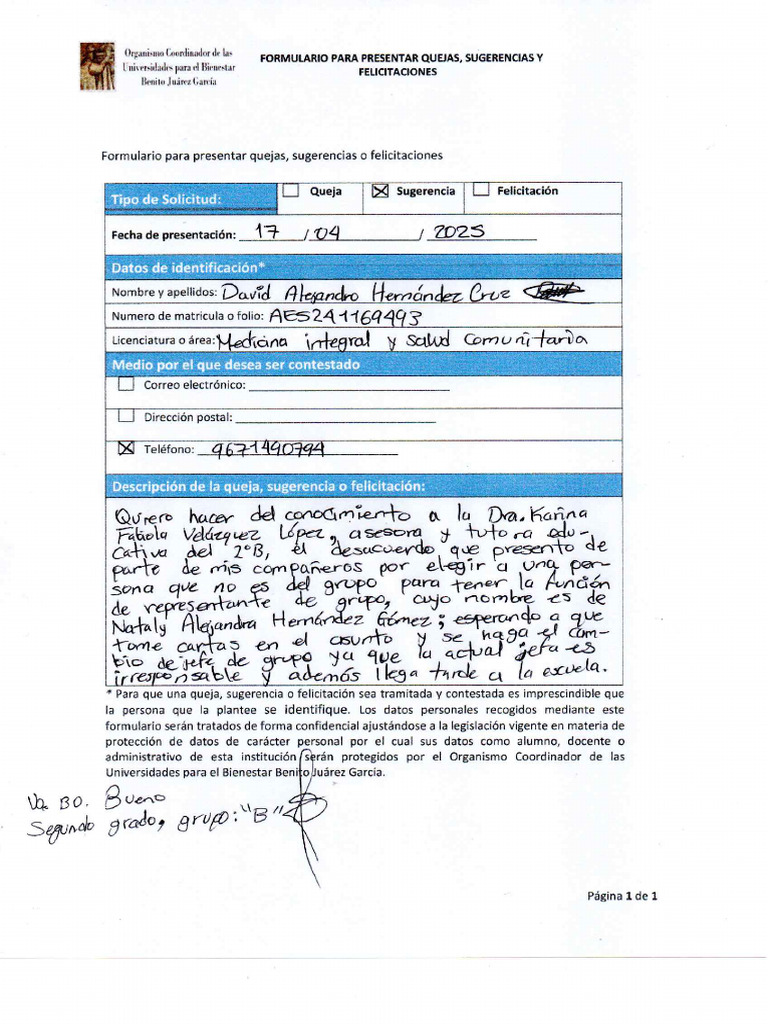 Organismo Coordinador de las
Universidades para el Bienestar
Benito Juárez García
FORMULARIO PARA PRESENTAR QUEJAS, SUGERENCIAS Y
FELICITACIONES
Formulario para presentar quejas, sugerencias o felicitaciones
Tipo de Solicitud: Queja Sugerencia Felicitación
Fecha de presentación: 17 / 04 / 2025
Datos de identificación*
Nombre y apellidos: David Alejandro Hernández Cruz
Numero de matricula o folio: AES241169493
Licenciatura o área: Medicina integral y salud comunitaria
Medio por el que desea ser contestado
Correo electrónico:
Dirección postal:
Teléfono: 9671490794
Descripción de la queja, sugerencia o felicitación:
Quiero hacer del conocimiento a la Dra. Karina
Fabiola Velázquez López, asesora y tutora edu-
cativa del 2°B, el desacuerdo que presento de
parte de mis compañeros por elegir a una per-
sona que no es del grupo para tener la función
de representante de grupo, cuyo nombre es de
Nataly Alejandra Hernández Gómez; esperando a que
tome cartas en el asunto y se haga el cam-
bio de jefe de grupo ya que la actual jefa es
irresponsable y además llega tarde a la escuela.
* Para que una queja, sugerencia o felicitación sea tramitada y contestada es imprescindible que
la persona que la plantee se identifique. Los datos personales recogidos mediante este
formulario serán tratados de forma confidencial ajustándose a la legislación vigente en materia de
protección de datos de carácter personal por el cual sus datos como alumno, docente o
administrativo de esta institución serán protegidos por el Organismo Coordinador de las
Universidades para el Bienestar Benito Juárez García.
Vo. BO. Bueno
Segundo grado, grupo: "B"
Página 1 de 1